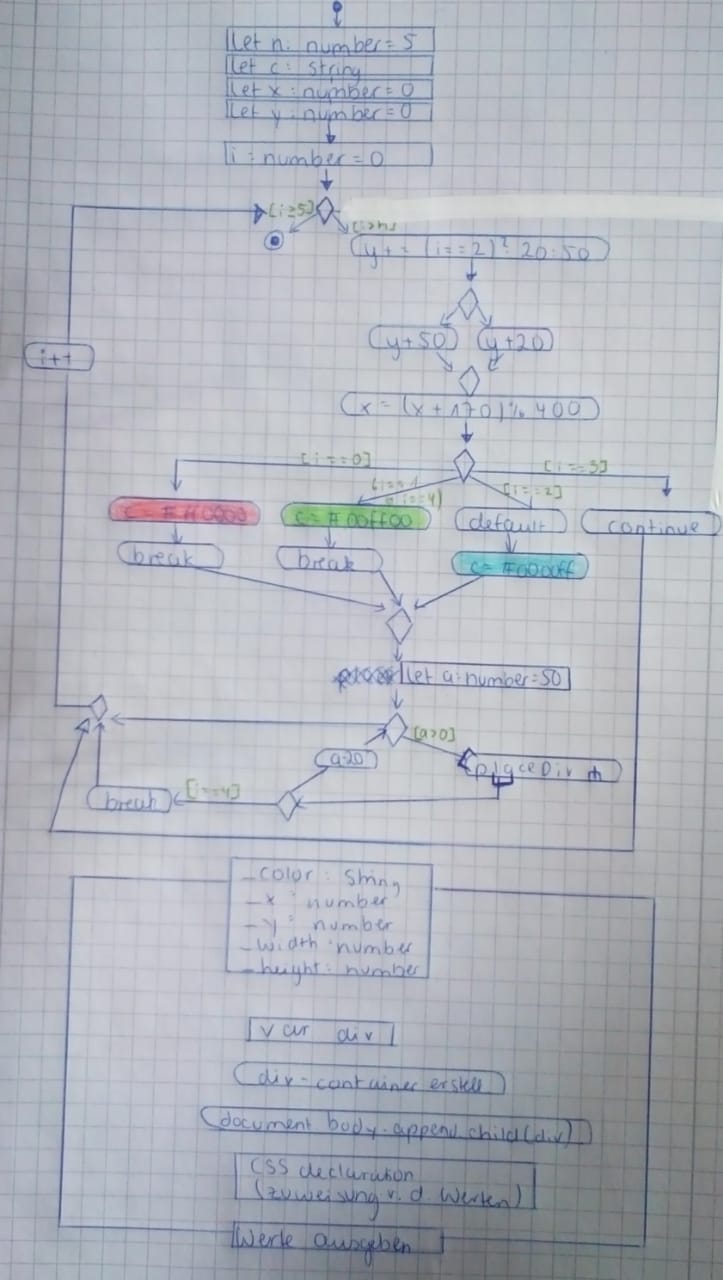 let n: number = 5
let c: string
let x: number = 0
let y: number = 0
i: number = 0
[i≥5]
y+= (i==2)? 20:50
i++
y+50
y+20
x = (x + 170)% 400
[i==0]
[i==3]
[i==2]
i==4)
c = #
c= #00ff00
default
continue
break
break
c= #0000ff
let a: number = 50
[a>0]
a-20
placeDiv
[i==4]
break
_color: String
_x : number
_y : number
_width : number
_height : number
var div
div-container erstell
document body.append child(div)
CSS declaration
(zuweisung v. d. Werten)
Werte ausgeben